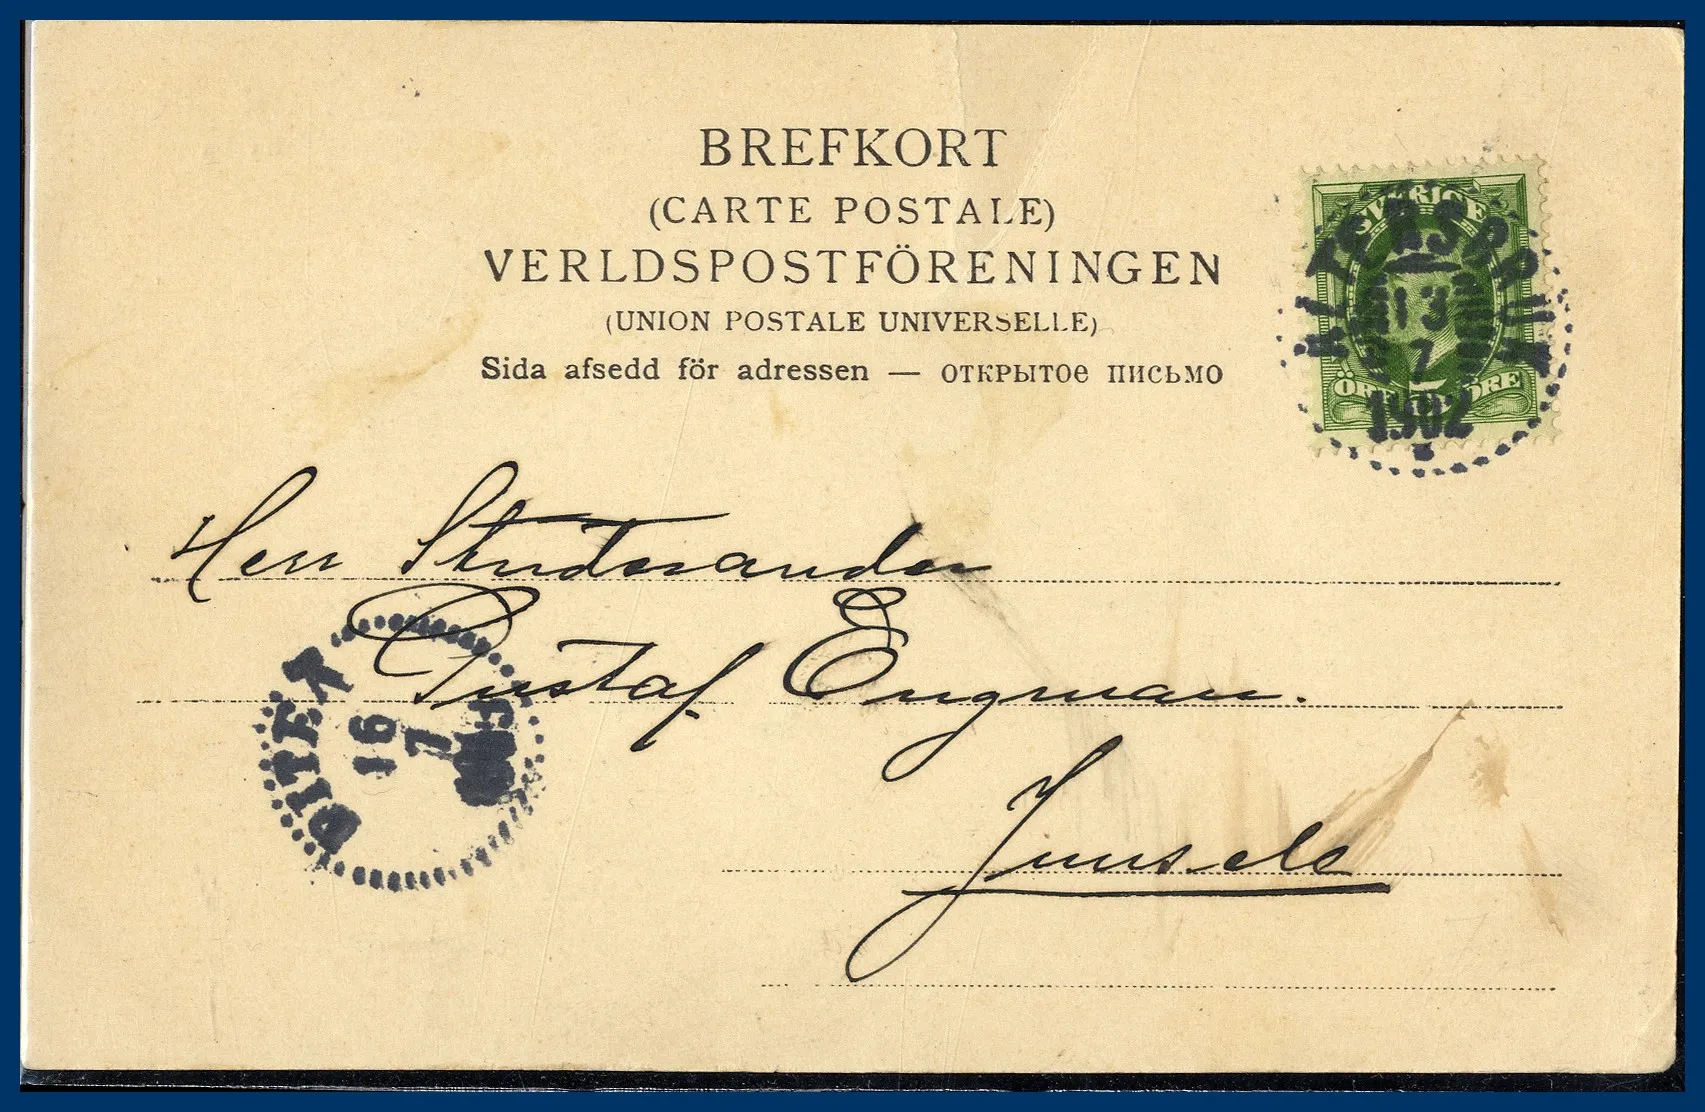 BREFKORT
(CARTE POSTALE)
VERLDSPOSTFÖRENINGEN
(UNION POSTALE UNIVERSELLE)
Sida afsedd för adressen — открытое письмо
SVERIGE
13
7
1902
ÖRE 5 ÖRE
Herr Studeranden
Gustaf Engman.
Junsele
16
7